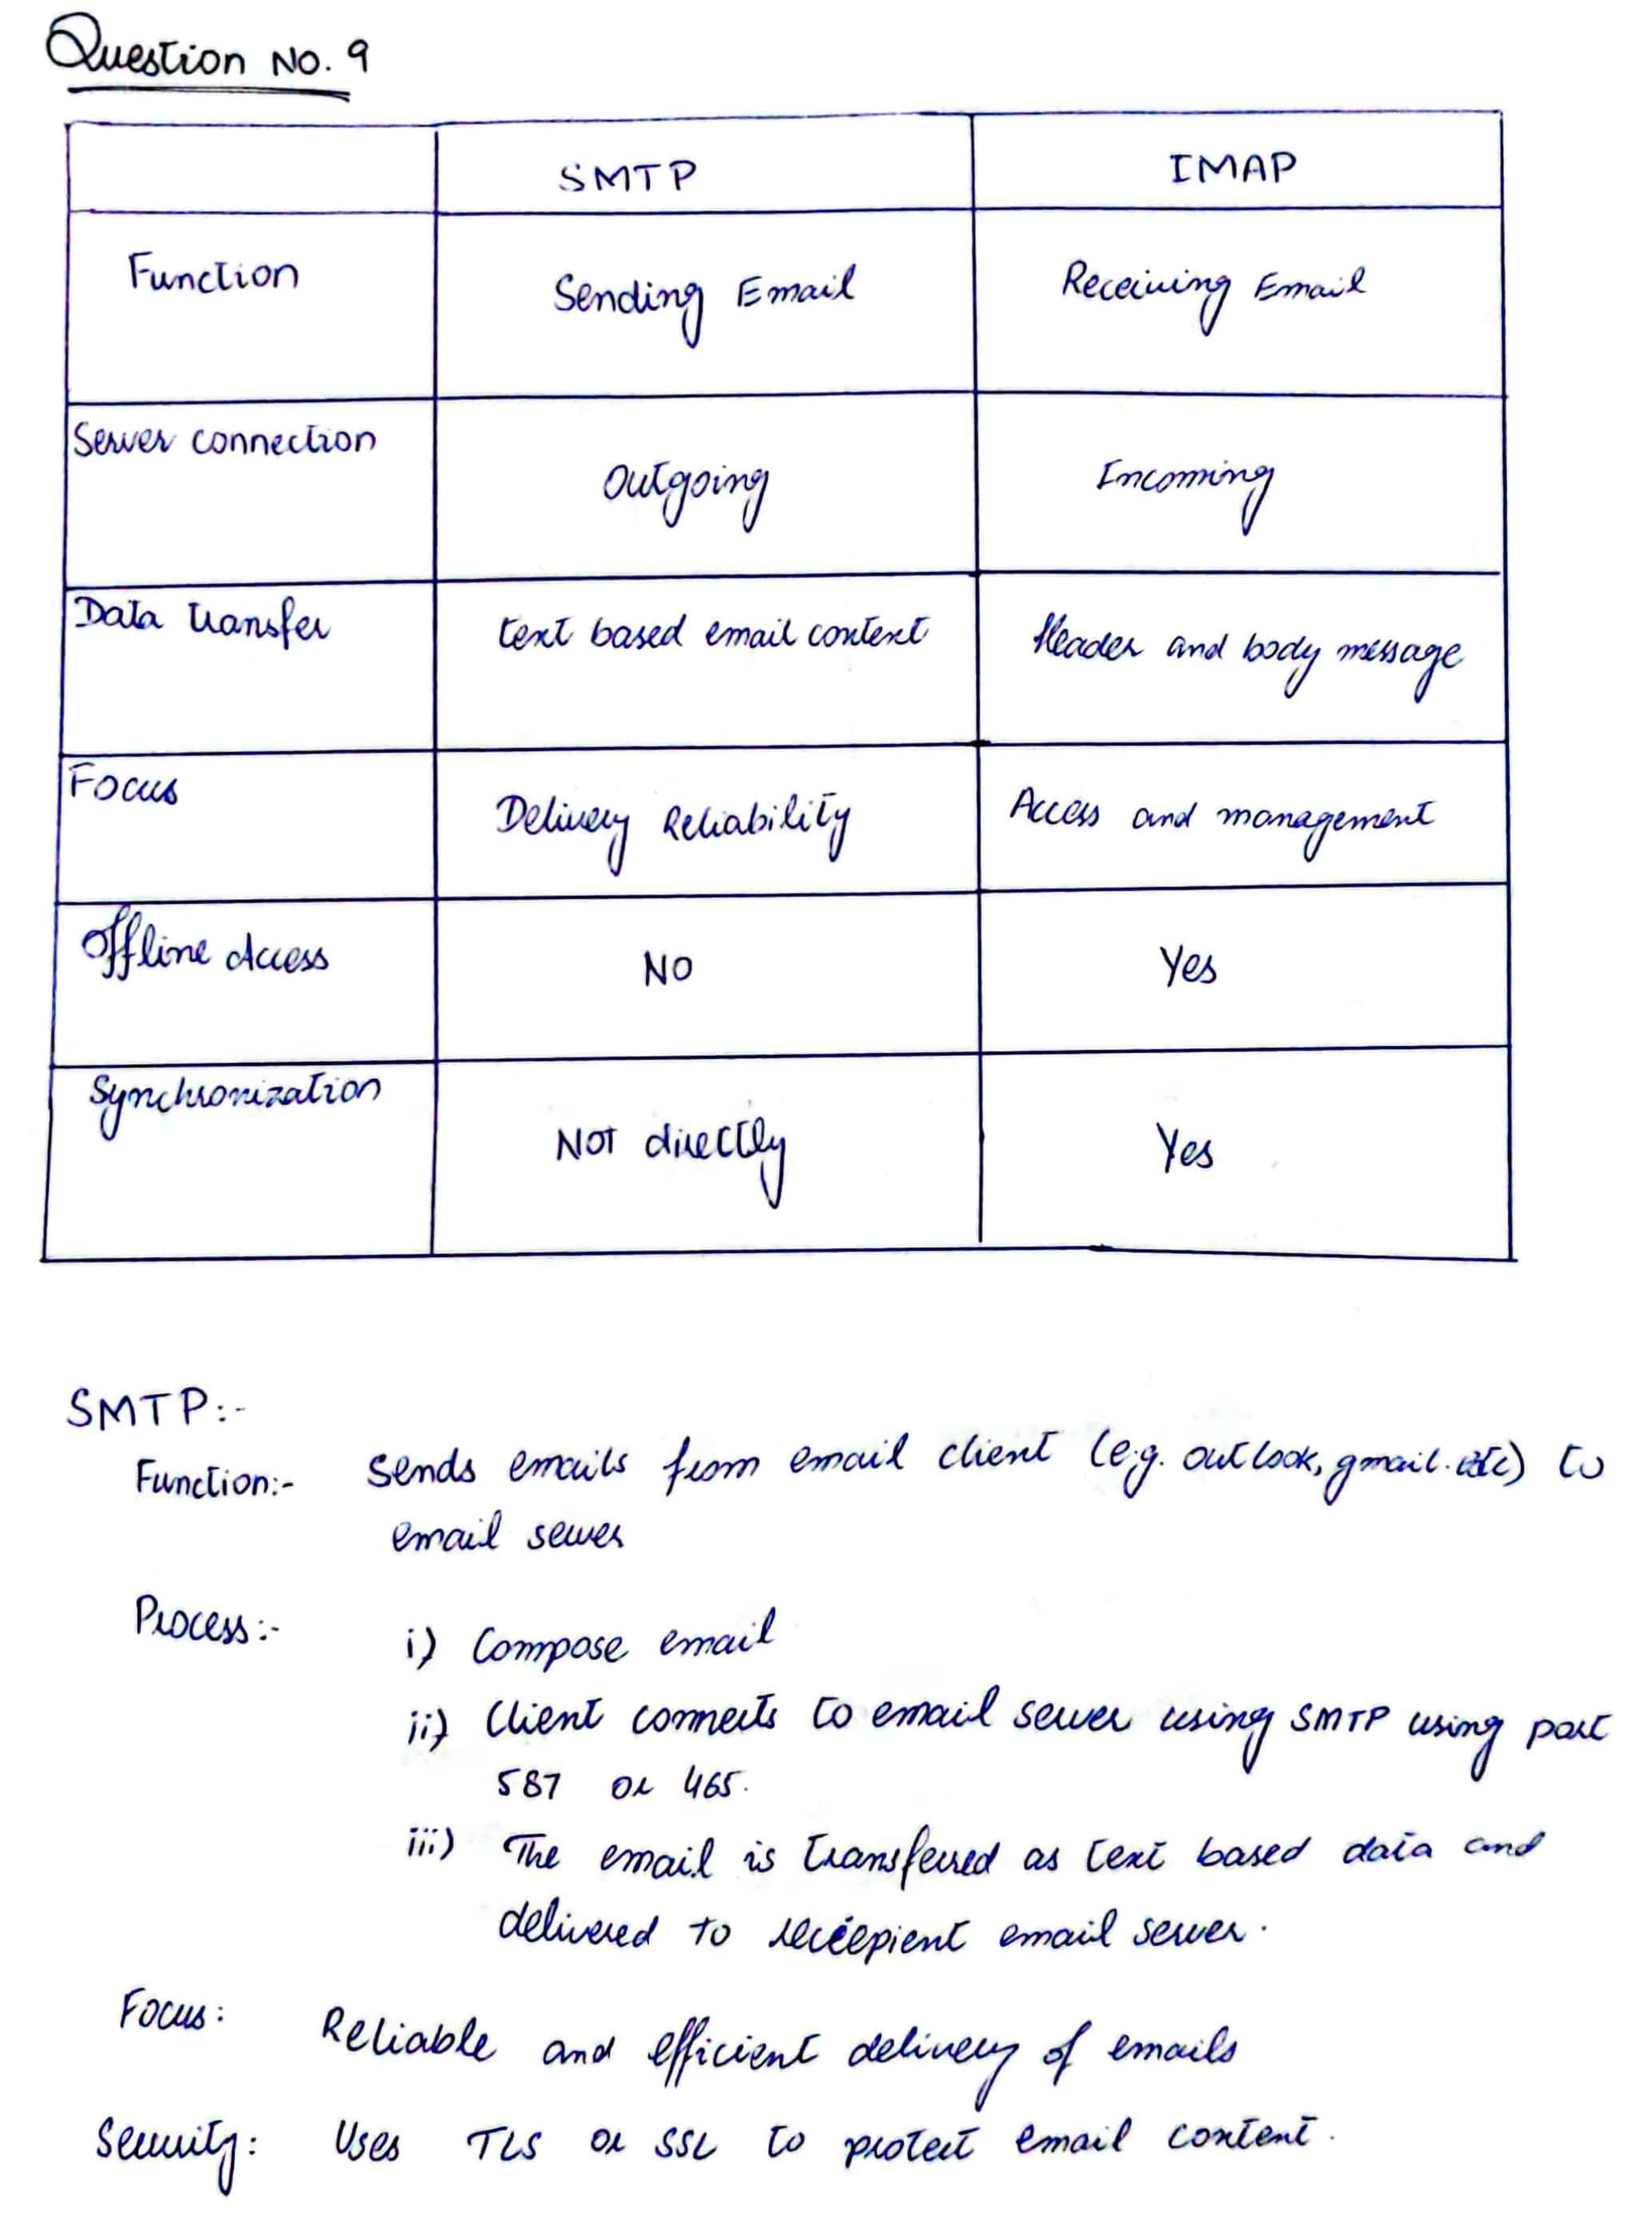 Question No. 9
SMTP IMAP
Function Sending Email Receiving Email
Server connection Outgoing Incoming
Data transfer text based email content Header and body message
Focus Delivery Reliability Access and management
Offline Access NO Yes
Synchronization NOT directly Yes
SMTP:-
Function:- Sends emails from email client (e.g. outlook, gmail. etc) to
email server
Process:- i) Compose email
ii) Client connects to email server using SMTP using port
587 or 465.
iii) The email is transferred as text based data and
delivered to receepient email server.
Focus: Reliable and efficient delivery of emails
Security: Uses TLS or SSL to protect email content.